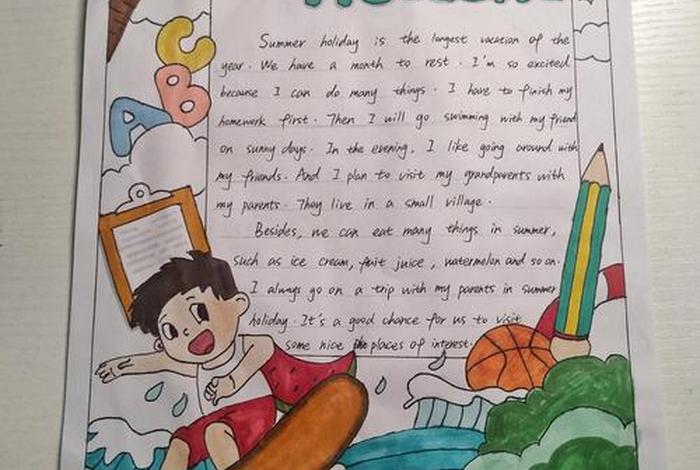 C
B
A
Summer holiday is the longest vacation of the
year. We have a month to rest. I'm so excited
because I can do many things. I have to finish my
homework first. Then I will go swimming with my friend
on sunny days. In the evening, I like going around with
my friends. And I plan to visit my grandparents with
my parents. They live in a small village.
Besides, we can eat many things in summer,
such as ice cream, fruit juice, watermelon and so on.
I always go on a trip with my parents in summer
holiday. It's a good chance for us to visit
some nice places of interest.